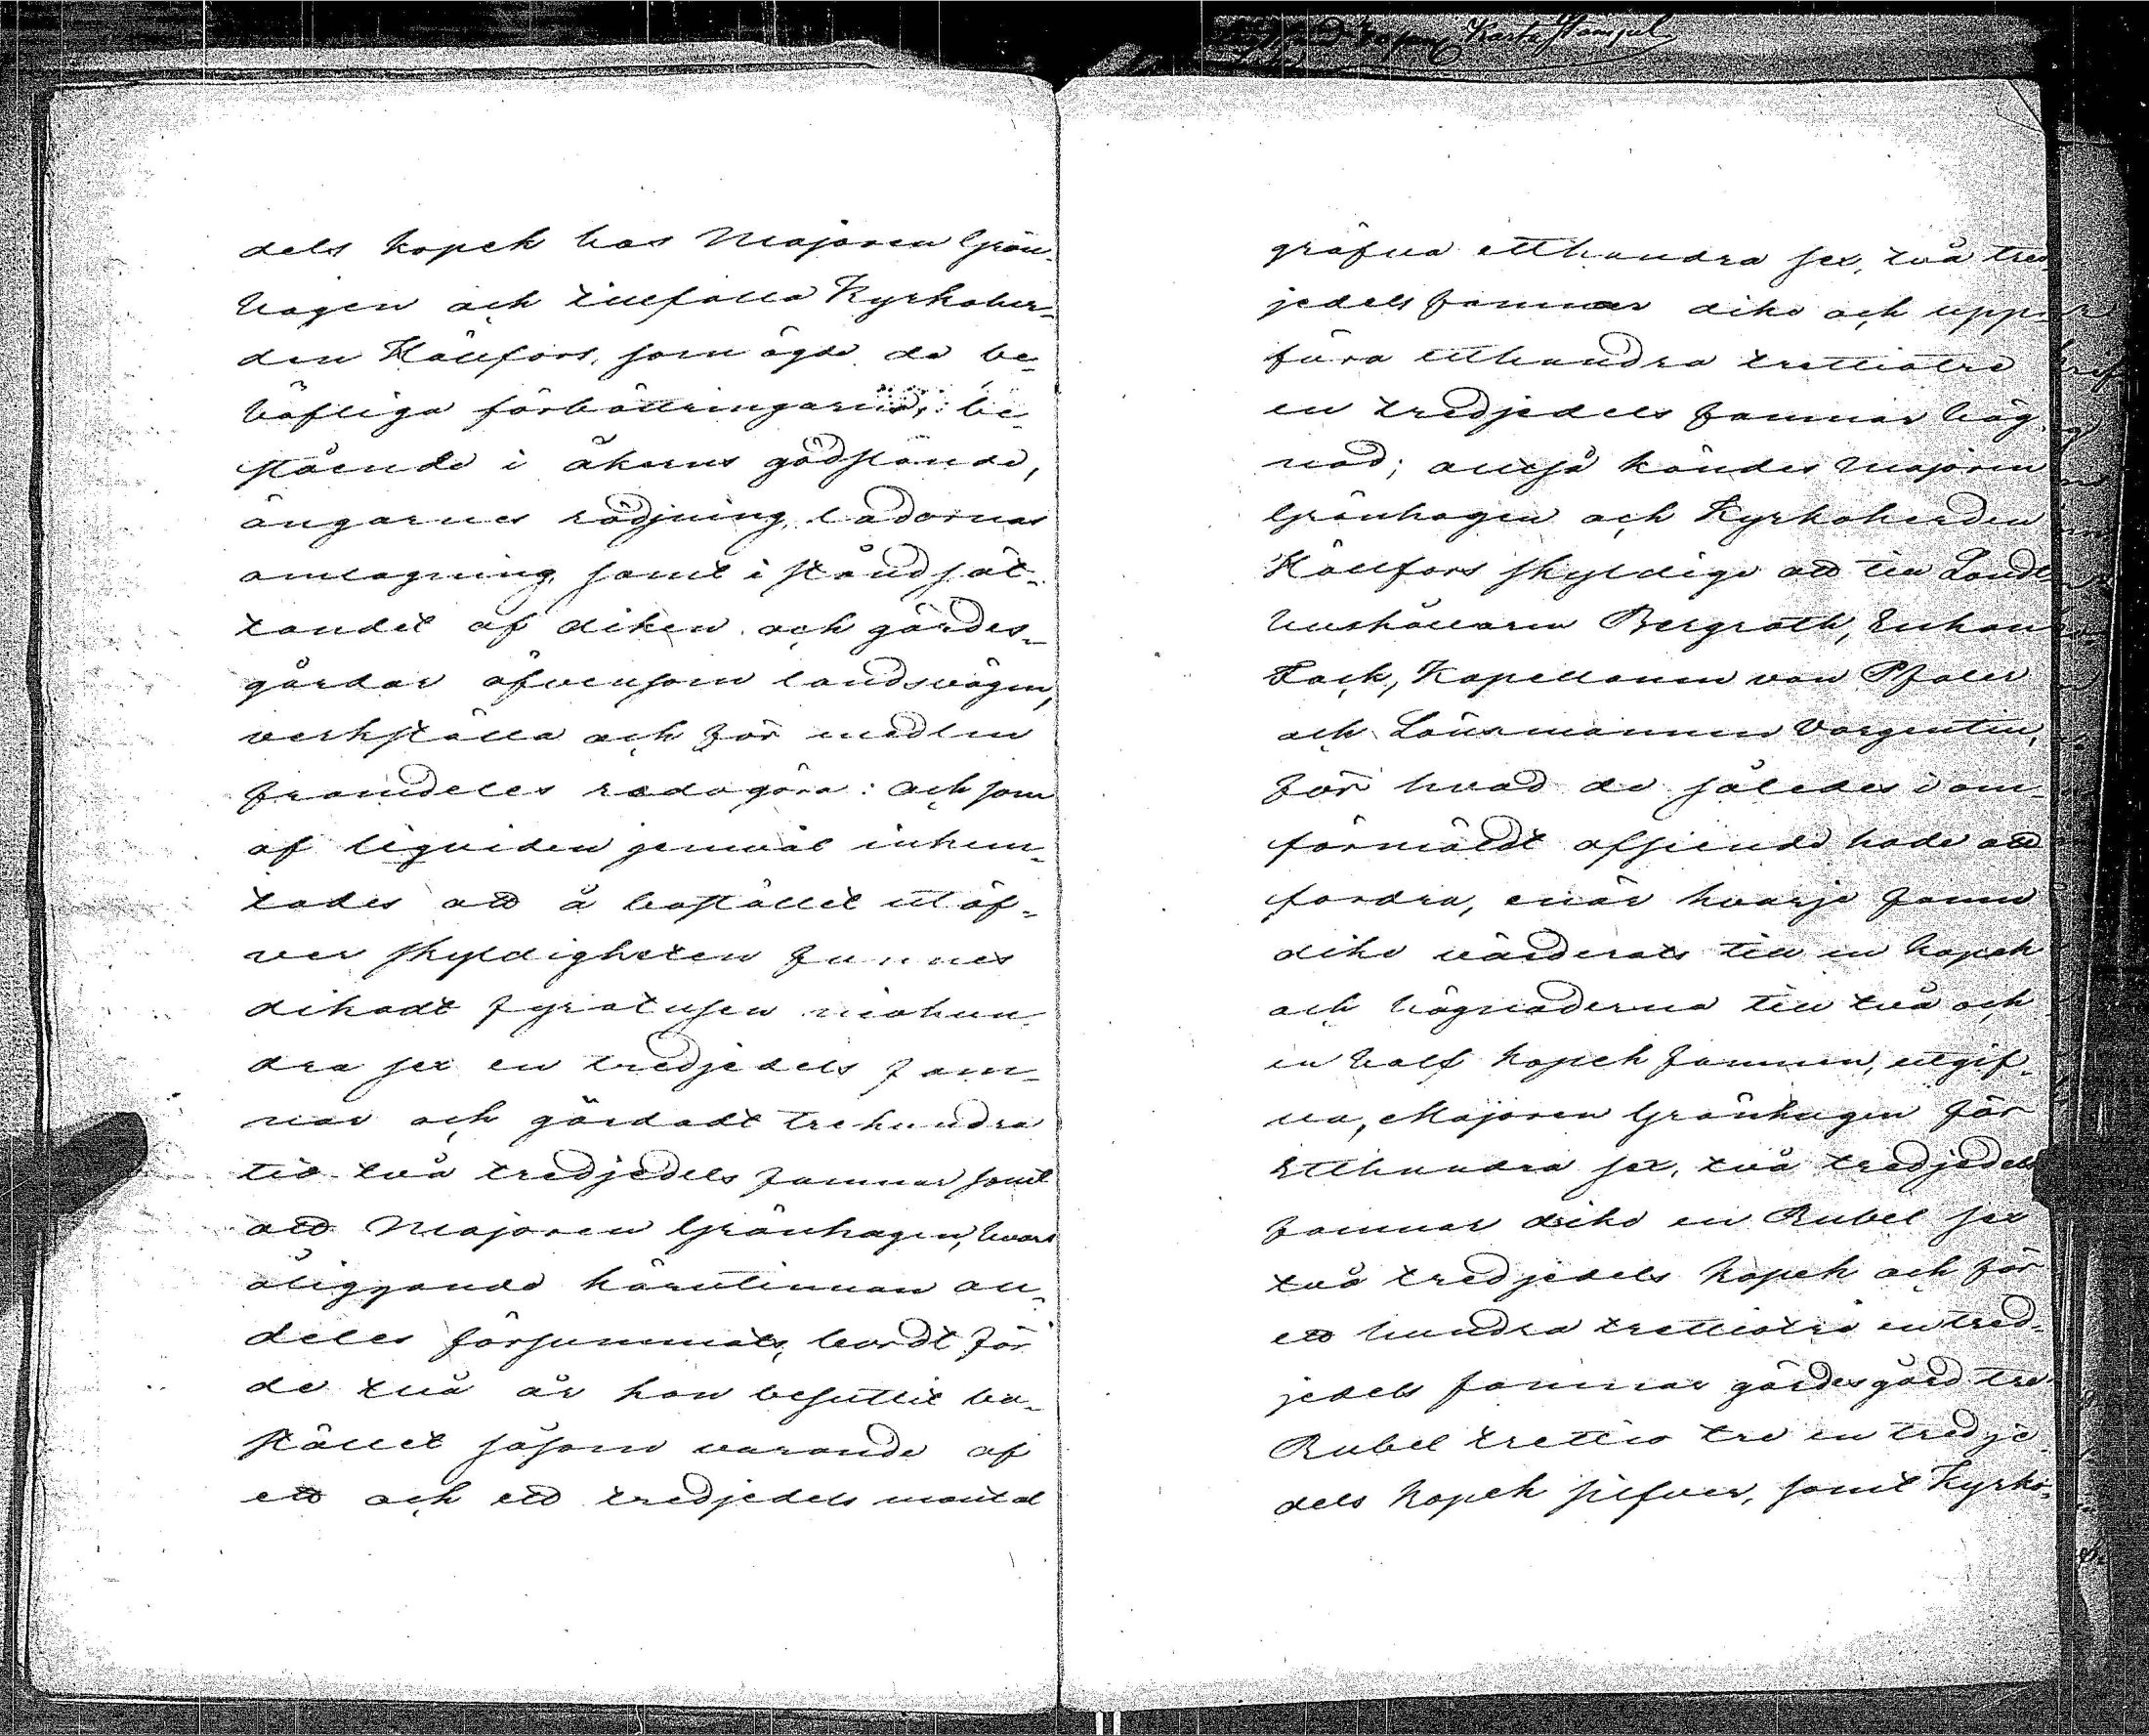 dels kopek hos Majoren Grön-
hagen och tillfalla Kyrkoher-
den Hällfors, som ägde de be-
höfliga förbättringarna, be-
stående i åkerns gödslande,
ängarnes rödjning, ladornas
omlagning, samt i stånd sät-
tandet af diken och gärdes-
gårdar äfvensom landsvägen,
verkställa och för medlen
framdeles redogöra: och som
af liquiden jemväl inhem-
tades att å bostället utöf-
ver skyldigheten funnes
dikadt fyratusen niohun-
dra sex en tredjedels fam-
nar och gärdadt trehundra
tio två tredjedels famnar samt
att Majoren Grönhagen, hvars
åliggande härutinnan an-
deles försummats, bordt för
de två år han besuttit bo-
stället såsom varande af
ett och ett tredjedels mantal
gräfva etthundra sex, två tred-
jedels famnar dike och upp-
föra etthundra trettiotre
en tredjedels famnar häg-
nad; alltså kändes Majoren
Grönhagen och Kyrkoherden
Hällfors skyldige att till Landt
hushållaren Bergroth, Enkan
Fack, Kapellanen von Pfaler
och Länsmannen Vargentin,
för hvad de således i om-
förmäldt afseende hade att
fordra, enär hvarje famn
dike värderats till en kopek
och hägnaderna till två och
en half kopek famnen, utgif-
va, Majoren Grönhagen för
Etthundra sex, två tredjedels
famnar dike en Rubel sex
två tredjedels kopek och för
ett hundra trettiotre en tred-
jedels famnar gärdesgård tre
Rubel trettio tre en tredje-
dels kopek silfver, samt Kyrko-